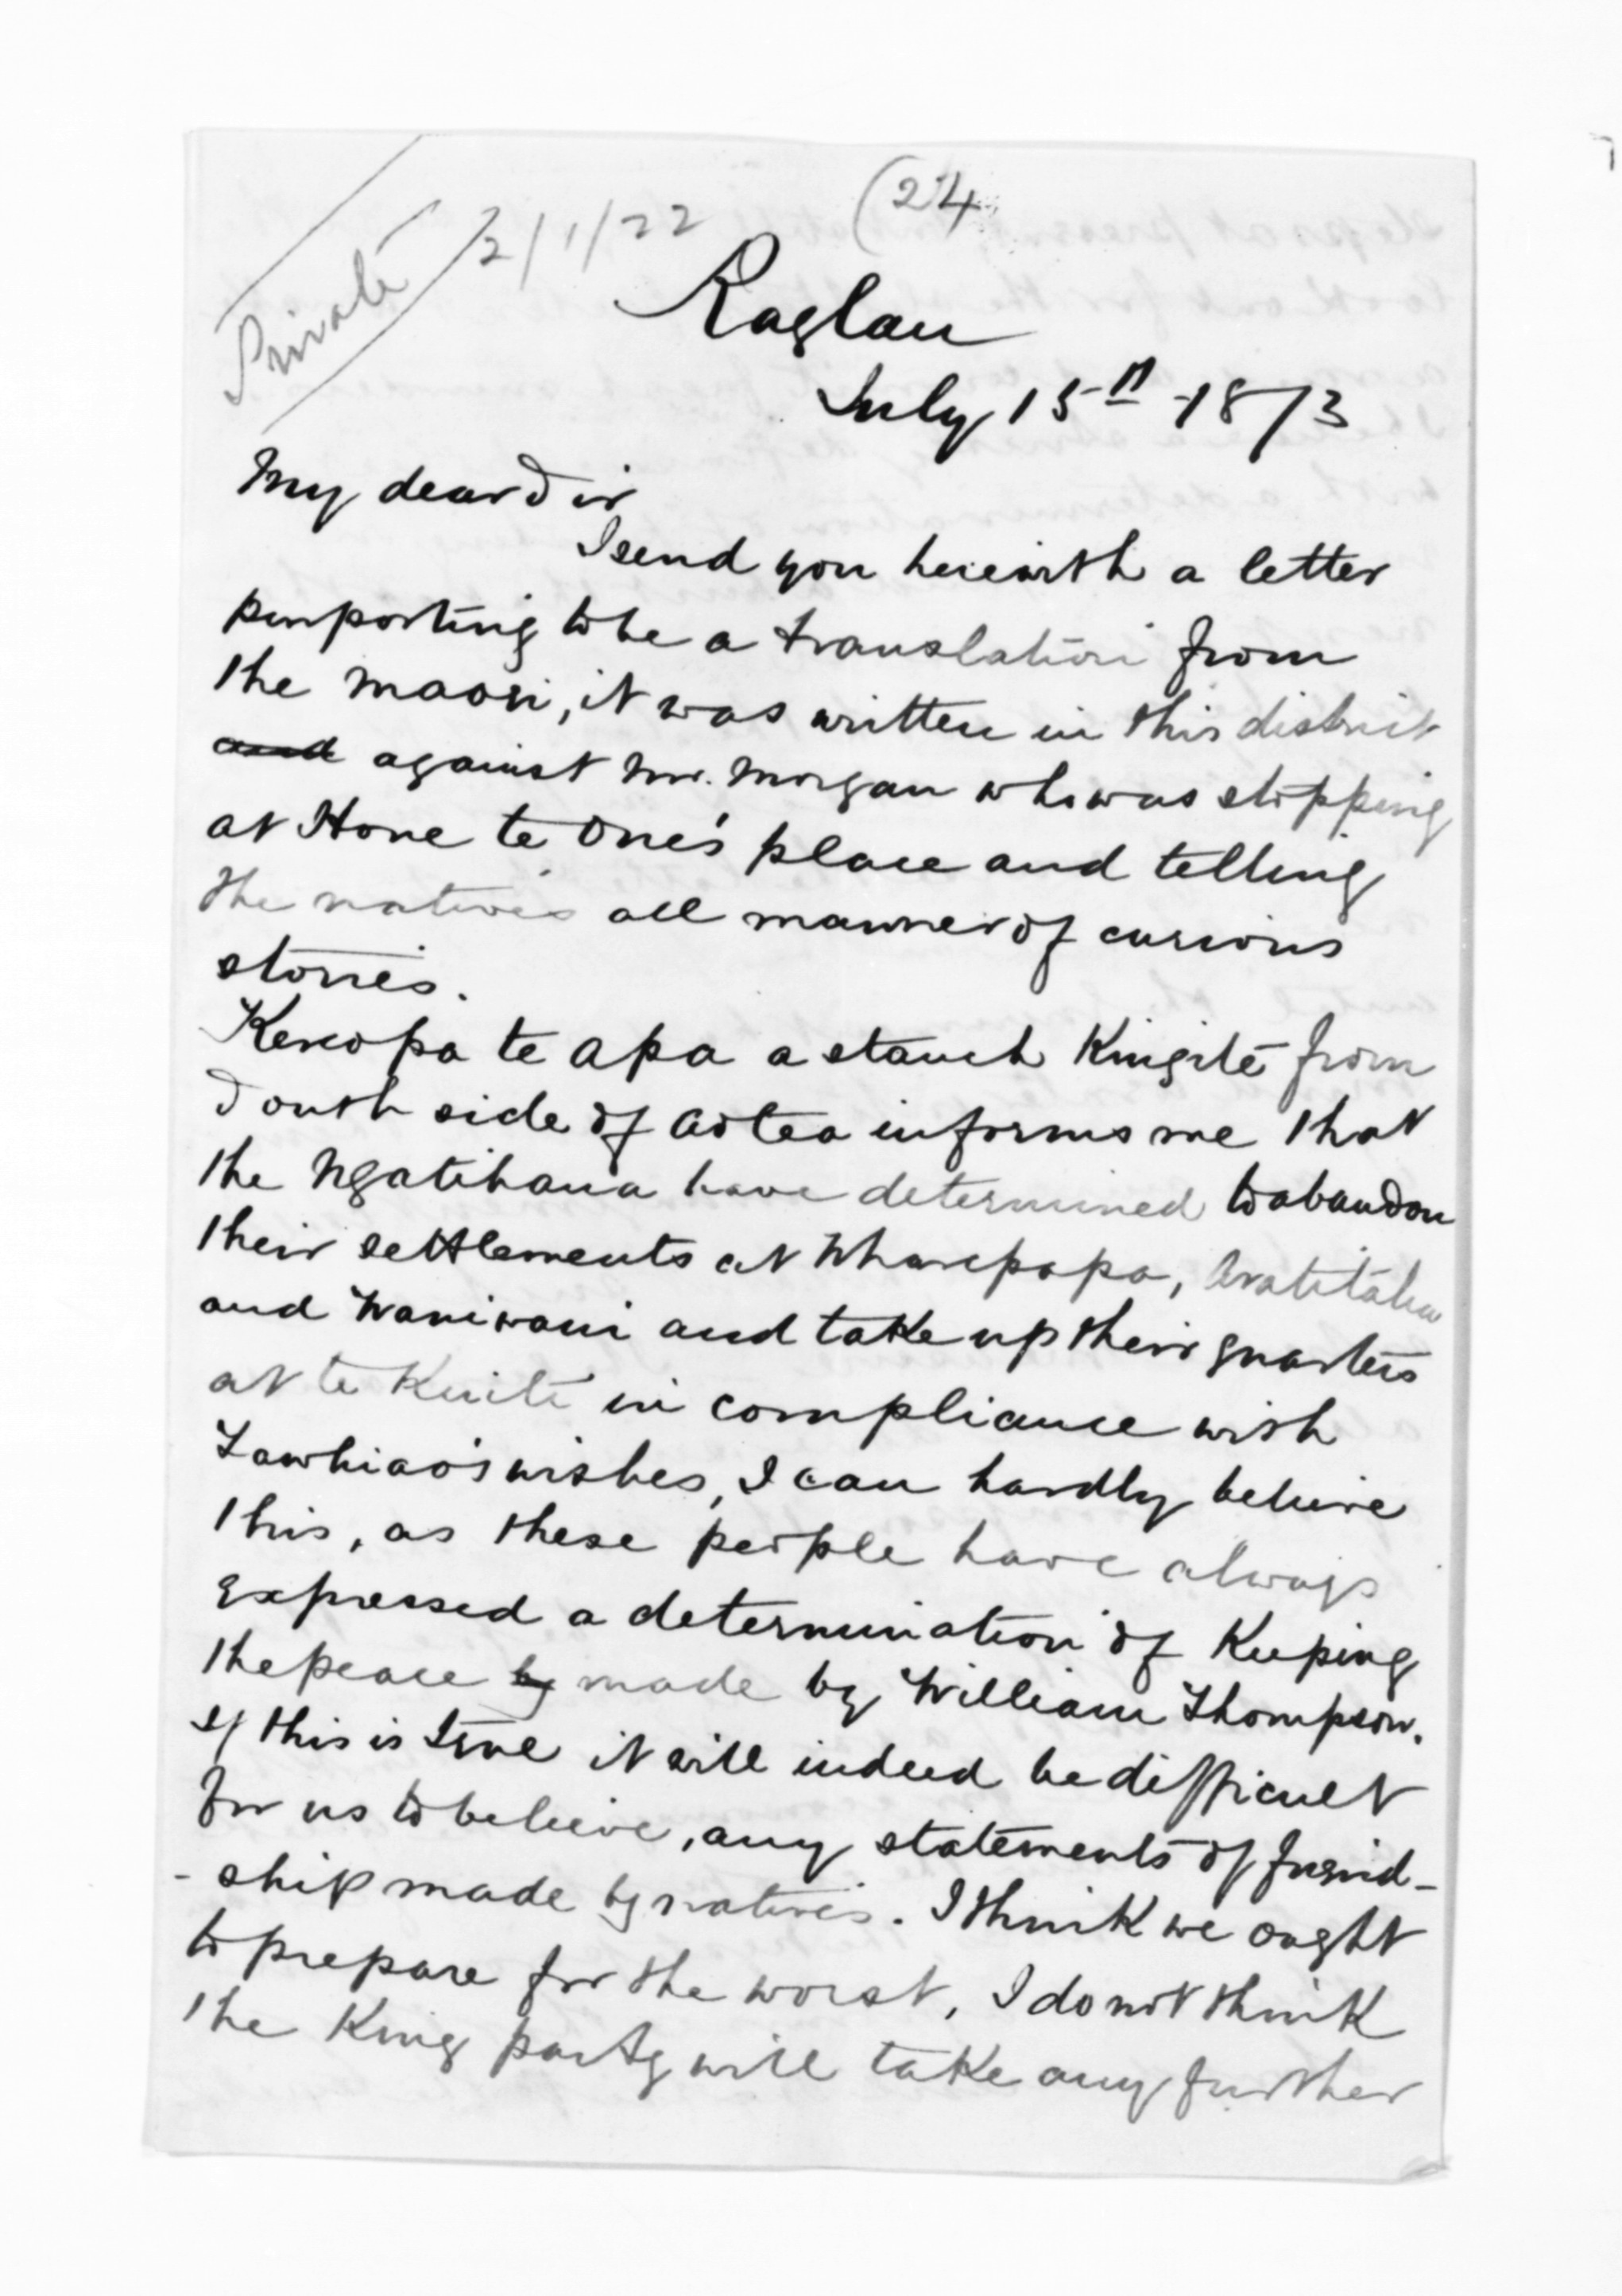 Private
(24
Raglan
July 15th 1873
My dear Sir
I send you herewith a letter
purporting to be a translation from
the maori, it was written in this district
and against Mr. Morgan who was stopping
at Hone te One's place and telling
the natives all manner of curious
stories.
te Apa a stanch Kingite from
South side of Aotea informs me that
the Ngatihaua have determined to abandon
their settlements at Wharepapa, Aratitaha
and Waniwani and take up their quarters
at te Kuiti in compliance with
Tawhiao's wishes, I can hardly believe
this, as these people have always
expressed a determination of Keeping
the peace by made by William Thompson.
If this is true it will indeed be difficult
for us to believe, any statements of freind-
-ship made by natives. I think we ought
to prepare for the worst, I do not think
the King party will take any further